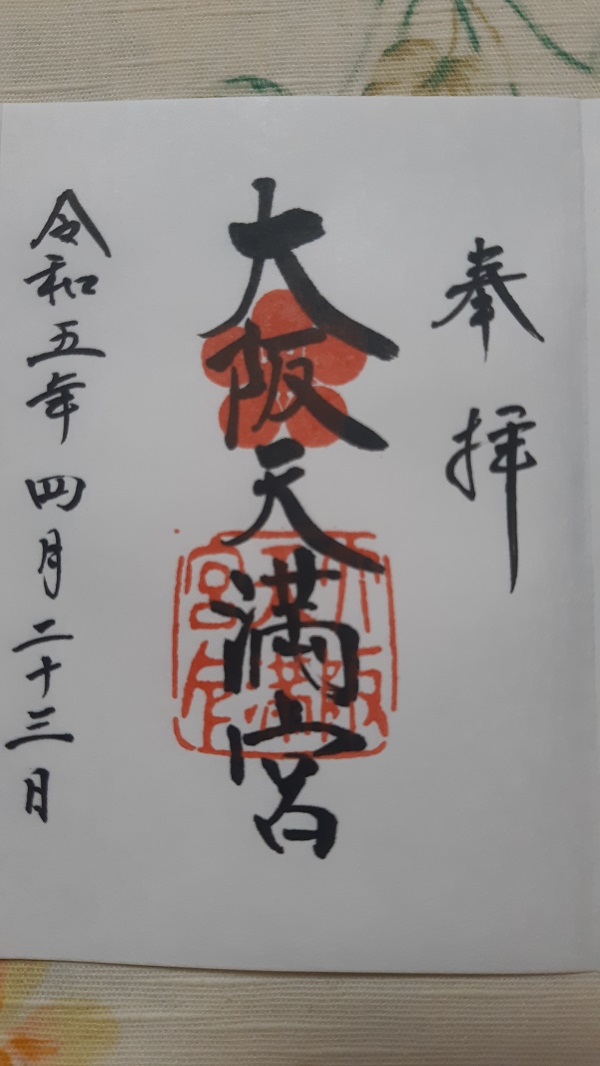 奉拝
大阪天満宮
令和五年四月二十三日